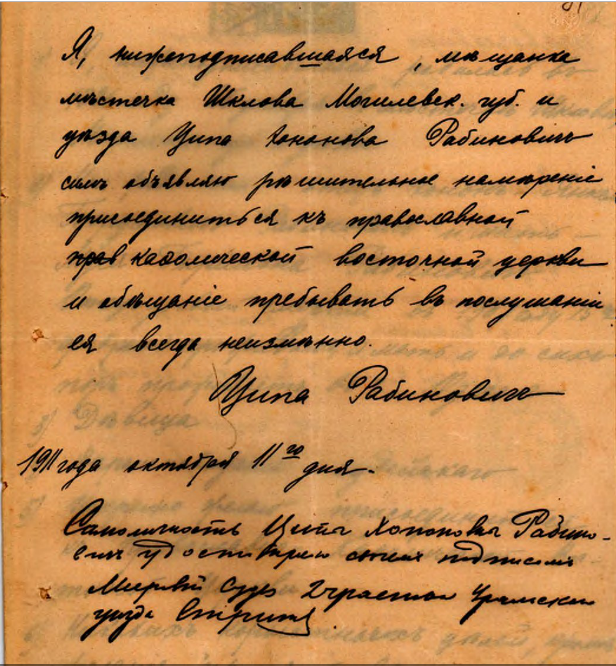 Я, нижеподписавшаяся, мѣщанка
мѣстечка Шклова Могилевск. губ. и
уѣзда Ципа Хононова Рабиновичъ
симъ объявляю рѣшительное намѣреніе
присоединиться къ православной
прав каѳолической восточной церкви
и обѣщаніе пребывать въ послушаніи
ея всегда неизмѣнно.
Ципа Рабиновичъ
1911 года октября 11го дня.
Самоличность Ципы Хононовы Рабино-
вичъ удостовѣряю своею подписью
Мировой Судья 2 участка
уѣзда
3) Дѣвица